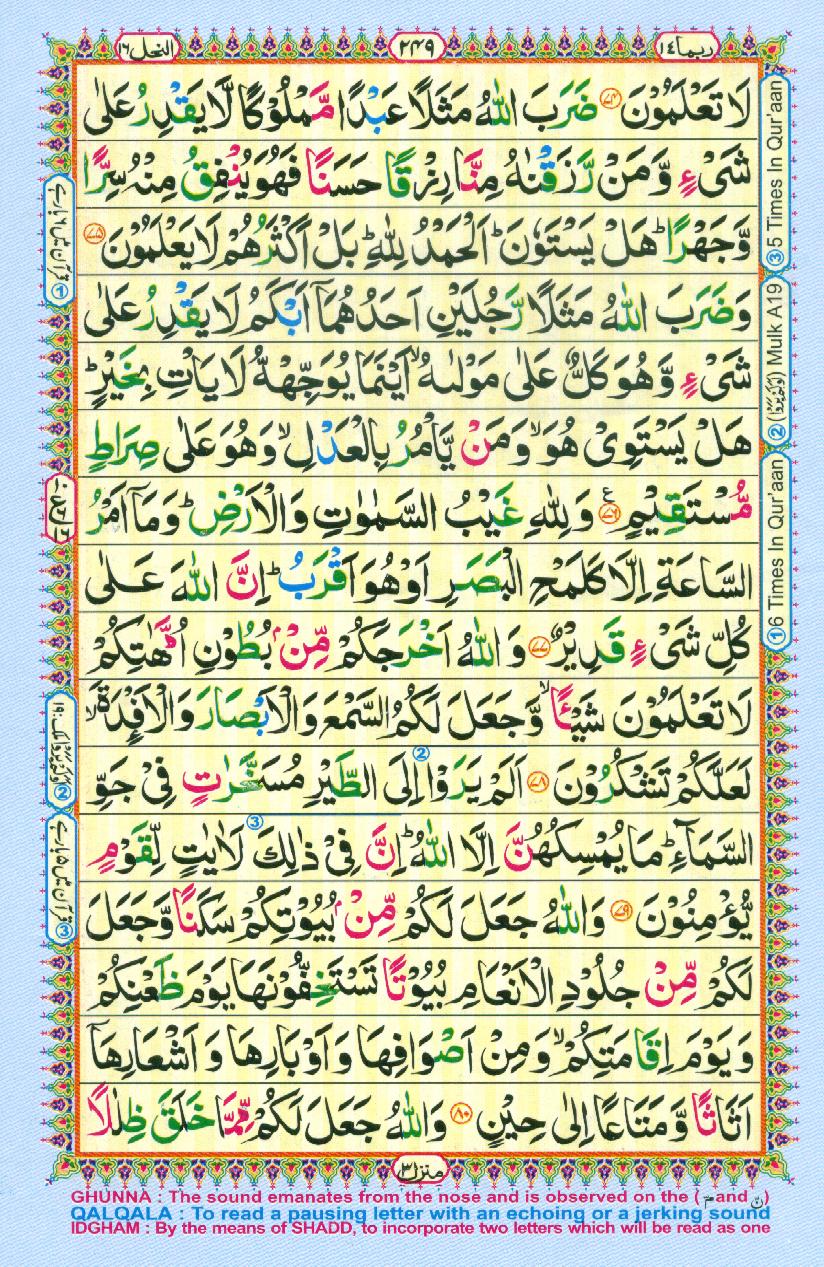 ربما ١٤
٢٤٩
النحل ١٦
لَا تَعْلَمُوْنَ ﴿۷۴﴾ ضَرَبَ اللّٰهُ مَثَلًا عَبْدًا مَّمْلُوْكًا لَّا يَقْدِرُ عَلٰى
شَىْءٍ وَّمَنْ رَّزَقْنٰهُ مِنَّا رِزْقًا حَسَنًا فَهُوَ يُنْفِقُ مِنْهُ سِرًّا
وَّجَهْرًاؕ هَلْ يَسْتَوٗنَؕ اَلْحَمْدُ لِلّٰهِؕ بَلْ اَكْثَرُهُمْ لَا يَعْلَمُوْنَ ﴿۷۵﴾
وَضَرَبَ اللّٰهُ مَثَلًا رَّجُلَيْنِ اَحَدُهُمَاۤ اَبْكَمُ لَا يَقْدِرُ عَلٰى
شَىْءٍ وَّهُوَ كَلٌّ عَلٰى مَوْلٰىهُۙ اَيْنَمَا يُوَجِّهْهُّ لَا يَاْتِ بِخَيْرٍؕ
هَلْ يَسْتَوِىْ هُوَۙ وَمَنْ يَّاْمُرُ بِالْعَدْلِۙ وَهُوَ عَلٰى صِرَاطٍ
مُّسْتَقِيْمٍ ﴿۷۶﴾ ع وَلِلّٰهِ غَيْبُ السَّمٰوٰتِ وَالْاَرْضِؕ وَمَاۤ اَمْرُ
السَّاعَةِ اِلَّا كَلَمْحِ الْبَصَرِ اَوْ هُوَ اَقْرَبُؕ اِنَّ اللّٰهَ عَلٰى
كُلِّ شَىْءٍ قَدِيْرٌ ﴿۷۷﴾ وَاللّٰهُ اَخْرَجَكُمْ مِّنْۢ بُطُوْنِ اُمَّهٰتِكُمْ
لَا تَعْلَمُوْنَ شَيْـًٔاۙ وَّجَعَلَ لَكُمُ السَّمْعَ وَالْاَبْصَارَ وَالْاَفْـِٕدَةَۙ
لَعَلَّكُمْ تَشْكُرُوْنَ ﴿۷۸﴾ اَلَمْ يَرَوْا ② اِلَى الطَّيْرِ مُسَخَّرٰتٍ فِىْ جَوِّ
السَّمَآءِؕ مَا يُمْسِكُهُنَّ اِلَّا اللّٰهُؕ اِنَّ فِىْ ذٰلِكَ ③ لَاٰيٰتٍ لِّقَوْمٍ
يُّؤْمِنُوْنَ ﴿۷۹﴾ وَاللّٰهُ جَعَلَ لَكُمْ مِّنْۢ بُيُوْتِكُمْ سَكَنًا وَّجَعَلَ
لَكُمْ مِّنْ جُلُوْدِ الْاَنْعَامِ بُيُوْتًا تَسْتَخِفُّوْنَهَا يَوْمَ ظَعْنِكُمْ
وَيَوْمَ اِقَامَتِكُمْۙ وَمِنْ اَصْوَافِهَا وَاَوْبَارِهَا وَاَشْعَارِهَاۤ
اَثَاثًا وَّمَتَاعًا اِلٰى حِيْنٍ ﴿۸۰﴾ وَاللّٰهُ جَعَلَ لَكُمْ مِّمَّا خَلَقَ ظِلٰلًا
③ 5 Times In Qur'aan
② Mulk A19
① 6 Times In Qur'aan
① قرآن میں ٦ بار ہے
③ قرآن میں ۵ بار ہے
منزل ٣
GHUNNA : The sound emanates from the nose and is observed on the (مّ and نّ)
QALQALA : To read a pausing letter with an echoing or a jerking sound
IDGHAM : By the means of SHADD, to incorporate two letters which will be read as one